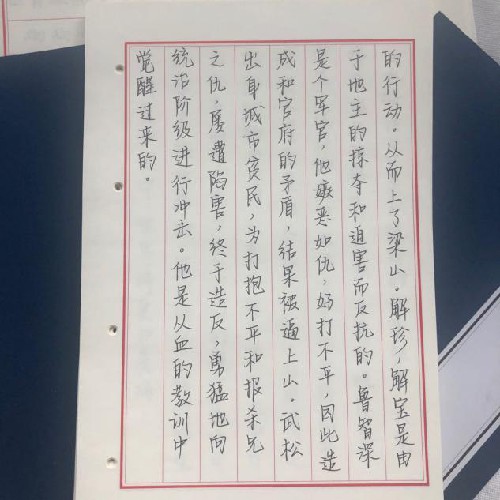 的行动。从而上了梁山。解珍、解宝是由
于地主的掠夺和迫害而反抗的。鲁智深
是个军官，他疾恶如仇，好打不平，因此造
成和官府的矛盾，结果被逼上山。武松
出身城市贫民，为打抱不平和报杀兄
之仇，屡遭陷害，终于造反，勇猛地向
统治阶级进行冲击。他是从血的教训中
觉醒过来的。